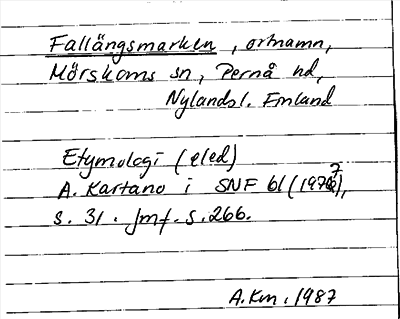 Fallängsmarken, ortnamn,
Mörskoms sn, Pernå hd,
Nylandsl. Finland
Etymologi (eled)
A. Kartano i SNF 61 (1977),
s. 31. Jmf. s. 266.
A.Km. 1987